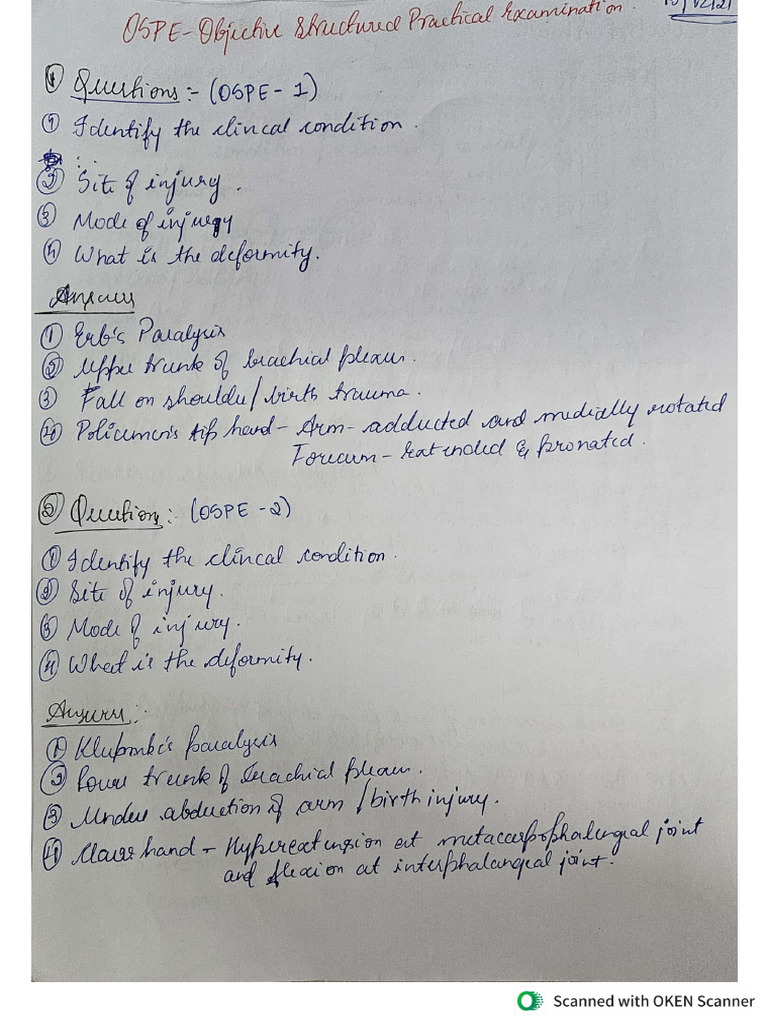 OSPE - Objective Structured Practical Examination
① Questions :- (OSPE - 1)
① Identify the clincal condition.
② Site of injury.
③ Mode of injury
④ What is the deformity.
Answers
① Erb's Paralysis
② Upper trunk of brachial plexus.
③ Fall on shoulder / birth trauma.
④ Policemen's tip hand - Arm - adducted and medially rotated
Forearm - Extended & pronated.
② Question :- (OSPE - 2)
① Identify the clincal condition.
② Site of injury.
③ Mode of injury.
④ What is the deformity.
Answers :-
① Klupmbi's paralysis
② Lower trunk of brachial plexus.
③ Undue abduction of arm / birth injury.
④ Claws hand - Hyperextension at metacarpophalengeal joint
and flexion at interphalangeal joint.
Scanned with OKEN Scanner